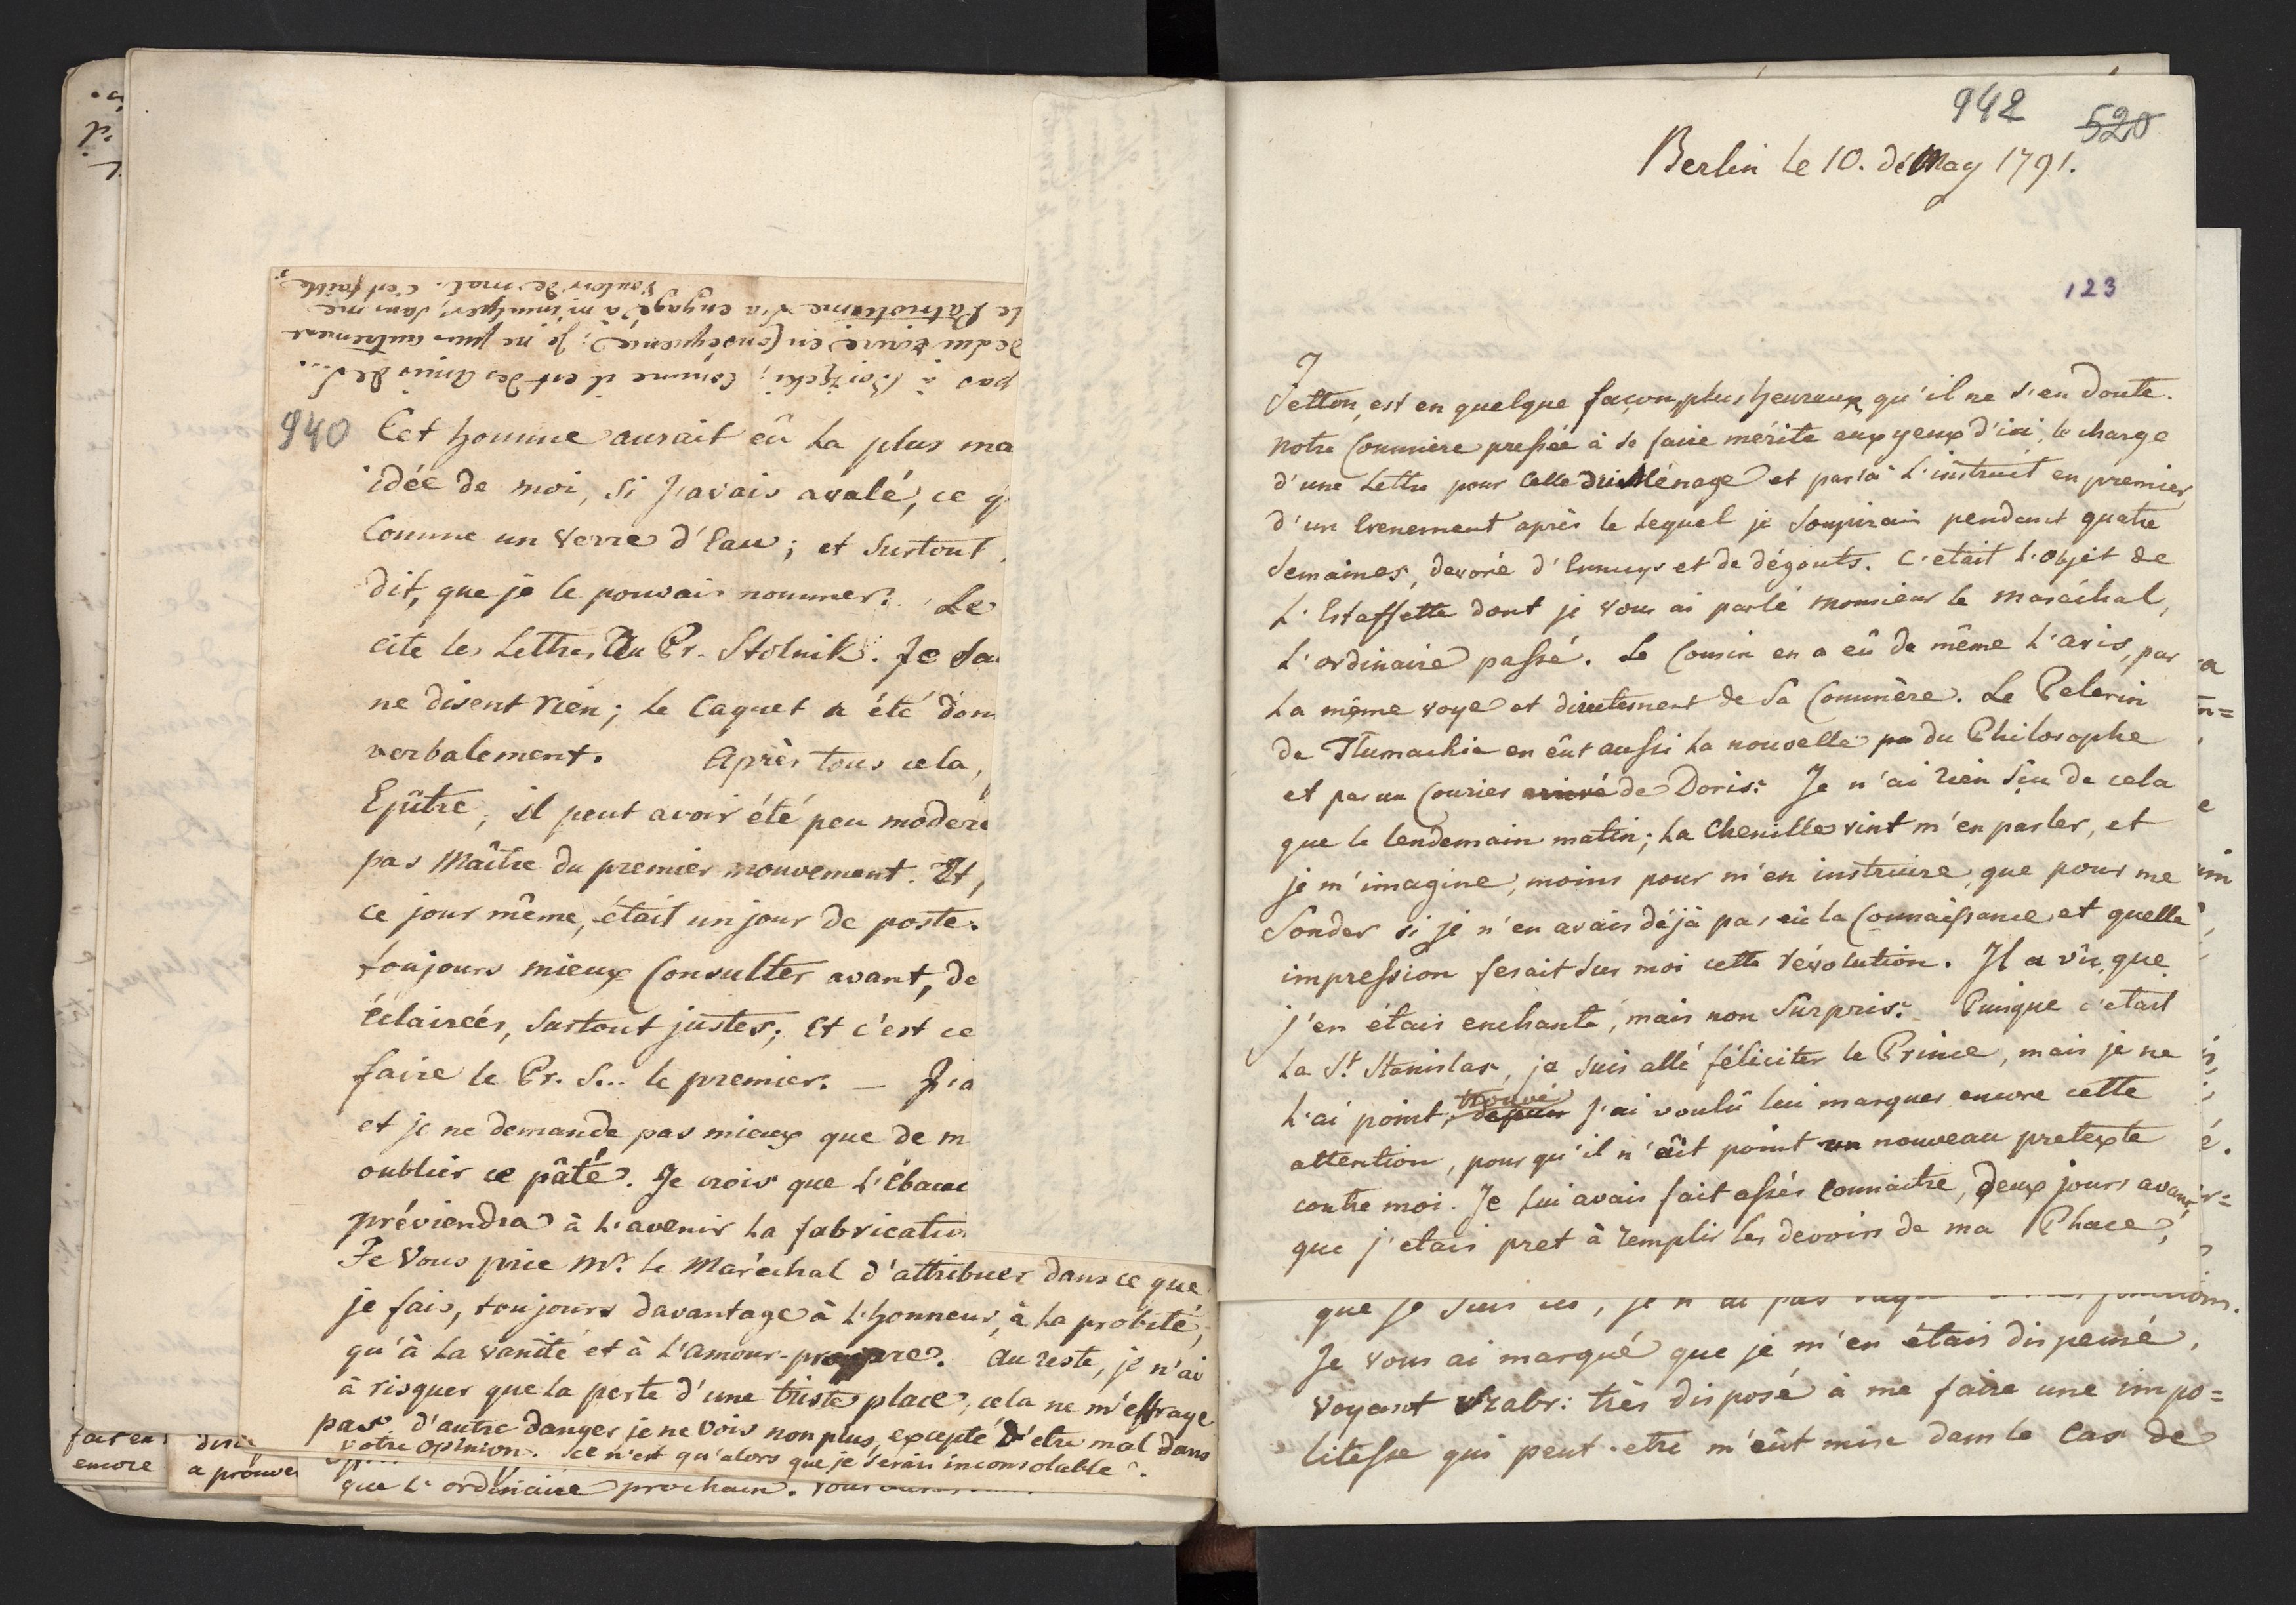 pas àBorzęcki; Comme il est des Amis de S...
de lui écrire en Conséquence; Je ne puis autrement
Le Patriotisme l'a engagé à m'inculper, sans me
vouloir de mal. C'est faible.
940
Cet homme aurait eû la plus ma
idée de moi, si j'avais avalé, ce q
Comme un verre d'Eau; et surtout
dit, que je le pouvais nommer. Le
cite les Lettres du Pr. Stolnik. Je sa
ne disent rien; le Caquet a été don
verbalement. Après tous cela,
Epître, il peut avoir été peu moderé
pas Maître du premier mouvement. Et,
ce jour même, était un jour de poste.
toujours mieux Consulter avant, de
éclaireés, surtout justes; Et c'est ce
faire le Pr. S... le premier. — J'a
et je ne demande pas mieux que de m
oublier ce pâté. Je crois que l'Ebauc
préviendra à l'avenir la fabricatio
Je Vous prie Mr. le Maréchal d'attribuer dans ce que
je fais, toujours davantage à l'honneur, à la probité,
qu'à la vanité et à l'amour-propre. Au reste, je n'ai
à risquer que la perte d'une triste place, cela ne m'effraye
pas d'autre danger je ne vois non plus, excepté d'etre mal dans
votre opinion. Ce n'est qu'alors que je serais inconsolable.
que l'ordinaire prochain.
fait en
encore
a prouve
942
520
Berlin le 10. de May 1791.
123
Jetton, est en quelque façon, plus heureux, qu'il ne s'en doute.
Notre Commère pressée à se faire mérite aux yeux d'ici, le charge
d'une Lettre pour Celle du Ménage et par là l'instruit en premier,
d'un Evenement après le lequel je soupirais pendant quatre
semaines, devoré d'Ennuys et de dégouts. C'etait l'objet de
l'Estaffette dont je vous ai parlé Monsieur le Maréchal,
l'ordinaire passé. Le Cousin en a eû de même l'avis, par
la même voye et directement de sa Commère. Le Pelerin
de Tlumachie en eût aussi la nouvelle pa du Philosophe
et par un Courier arrivé de Doris. Je n'ai rien sçu de cela
que le lendemain matin; La Chenille vint m'en parler, et
je m'imagine, moins pour m'en instruire, que pour me
Sonder si je n'en avais déjà pas eû la Connaissance et quelle
impression ferait sur moi cette révolution. Il a vû, que
j'en étais enchanté, mais non Surpris. Puisque c'etait
la St. Stanislas, je suis allé féliciter le Prince, mais je ne
l'ai point, depuis trouvé j'ai voulû lui marquer encore cette
attention, pour qu'il n'aît point un nouveau pretexte
contre moi. Je lui avais fait assés Connaitre, deux jours avant,
que j'etais pret à remplir les devoirs de ma Place,
que je suis ici, je n'ai pas fonctions.
Je vous ai marqué que je m'en étais dispensé,
voyant Hrabr: très disposé à me faire une impo=
litesse qui peut-etre m'eût mise dans le Cas de